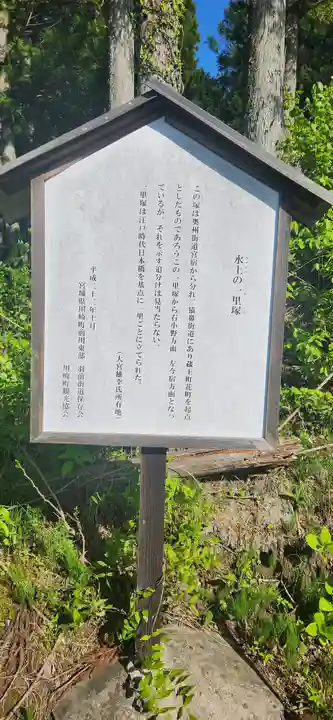 水上の一里塚
この塚は奥州街道宮宿から分れ、猿鼻街道にあり蔵王町花町を起点
としたものであろうこの一里塚から右小野方面 左今宿方面となっ
ているが、それを示す道分けは見当たらない。
一里塚は江戸時代日本橋を基点に一里ごとにきてられた。
(大宮補幸氏所有地)
平成二十二年十月
宮城県川崎町前川東部 羽前街道保存会
川崎町観光協会